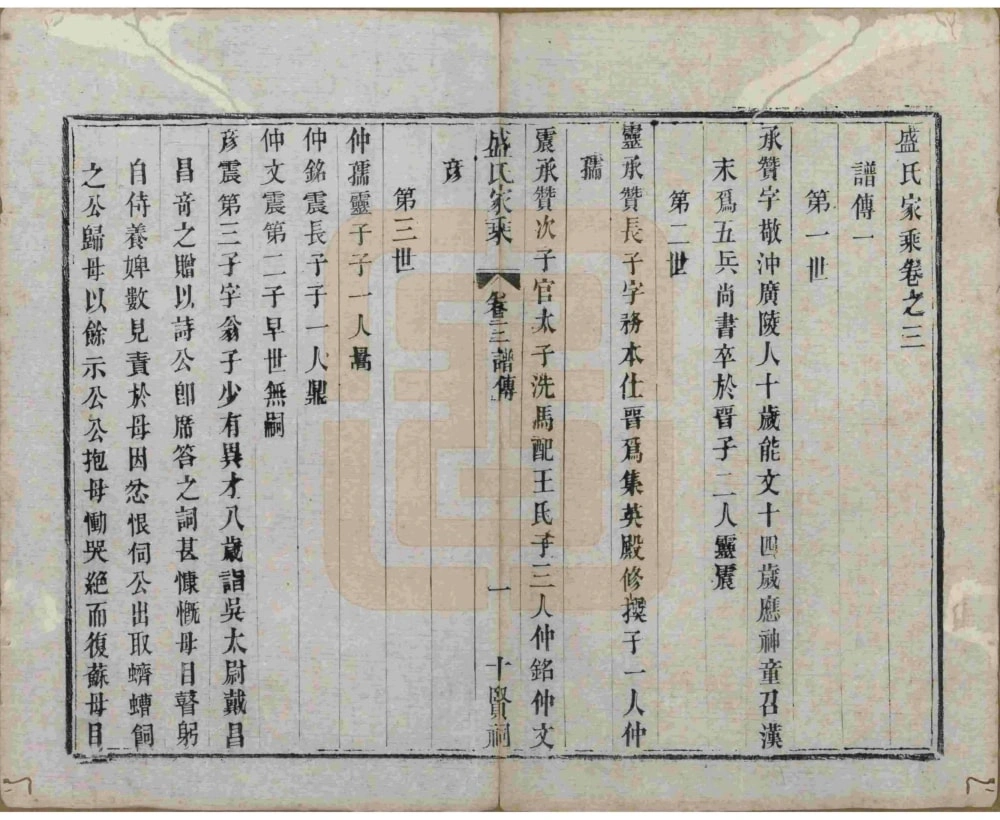 盛氏家乘卷之三
譜傳一
第一世
承贊字敬沖廣陵人十歲能文十四歲應神童召漢
末爲五兵尚書卒於晉子二人靈震
第二世
靈承贊長子字務本仕晉爲集英殿修撰子一人仲
孺
震承贊次子官太子洗馬配王氏子三人仲銘仲文
盛氏家乘 卷三 譜傳 一 十賢祠
彦
第三世
仲孺靈子子一人暠
仲銘震長子子一人鼎
仲文震第二子早世無嗣
彦震第三子字翁子少有異才八歲詣吳太尉戴昌
昌竒之贈以詩公卽席答之詞甚慷慨母目瞽躬
自侍養婢數見責於母因忿恨伺公出取蠐螬飼
之公歸母以餘示公公抱母慟哭絶而復蘇母目